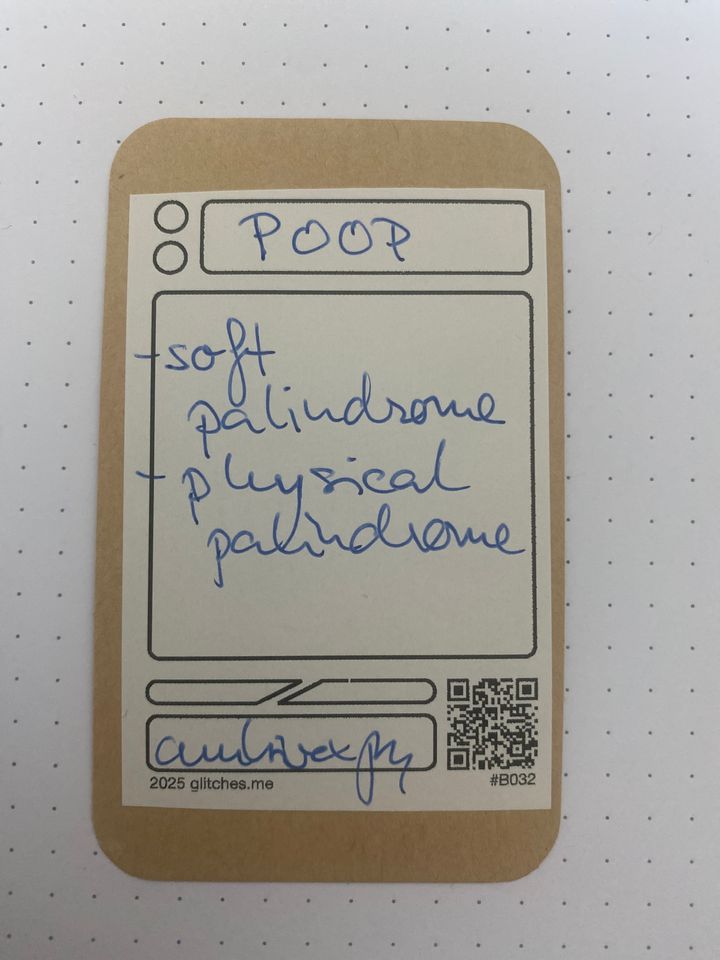 POOP
- soft
palindrome
- physical
palindrome
2025 glitches.me
#B032